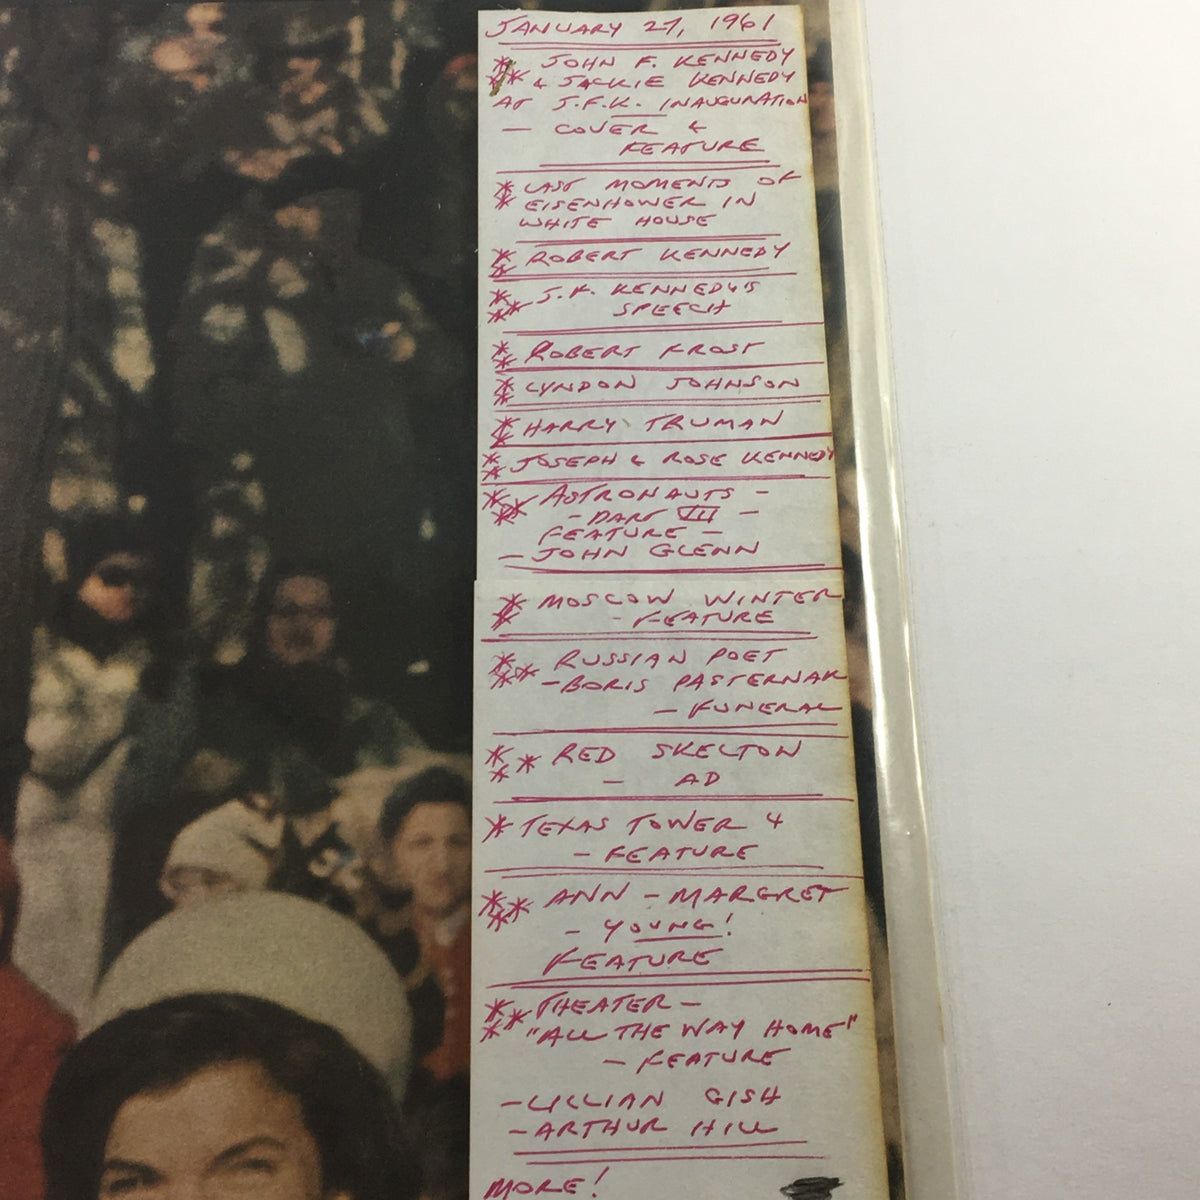 JANUARY 27, 1961
* JOHN F. KENNEDY
** & JACKIE KENNEDY
AT J.F.K. INAUGURATION
— COVER &
FEATURE
* LAST MOMENTS OF
* EISENHOWER IN
WHITE HOUSE
* ROBERT KENNEDY
*
* J.F. KENNEDY'S
** SPEECH
* ROBERT FROST
*
* LYNDON JOHNSON
*
* HARRY TRUMAN
*
* JOSEPH & ROSE KENNEDY
*
* ASTRONAUTS —
** — PART III —
FEATURE —
— JOHN GLENN
* MOSCOW WINTER
* — FEATURE
* RUSSIAN POET
** — BORIS PASTERNAK
— FUNERAL
* * RED SKELTON
* — AD
* TEXAS TOWER 4
— FEATURE
** ANN - MARGRET
* — YOUNG!
FEATURE
** THEATER —
* "ALL THE WAY HOME"
— FEATURE
— LILLIAN GISH
— ARTHUR HILL
MORE!